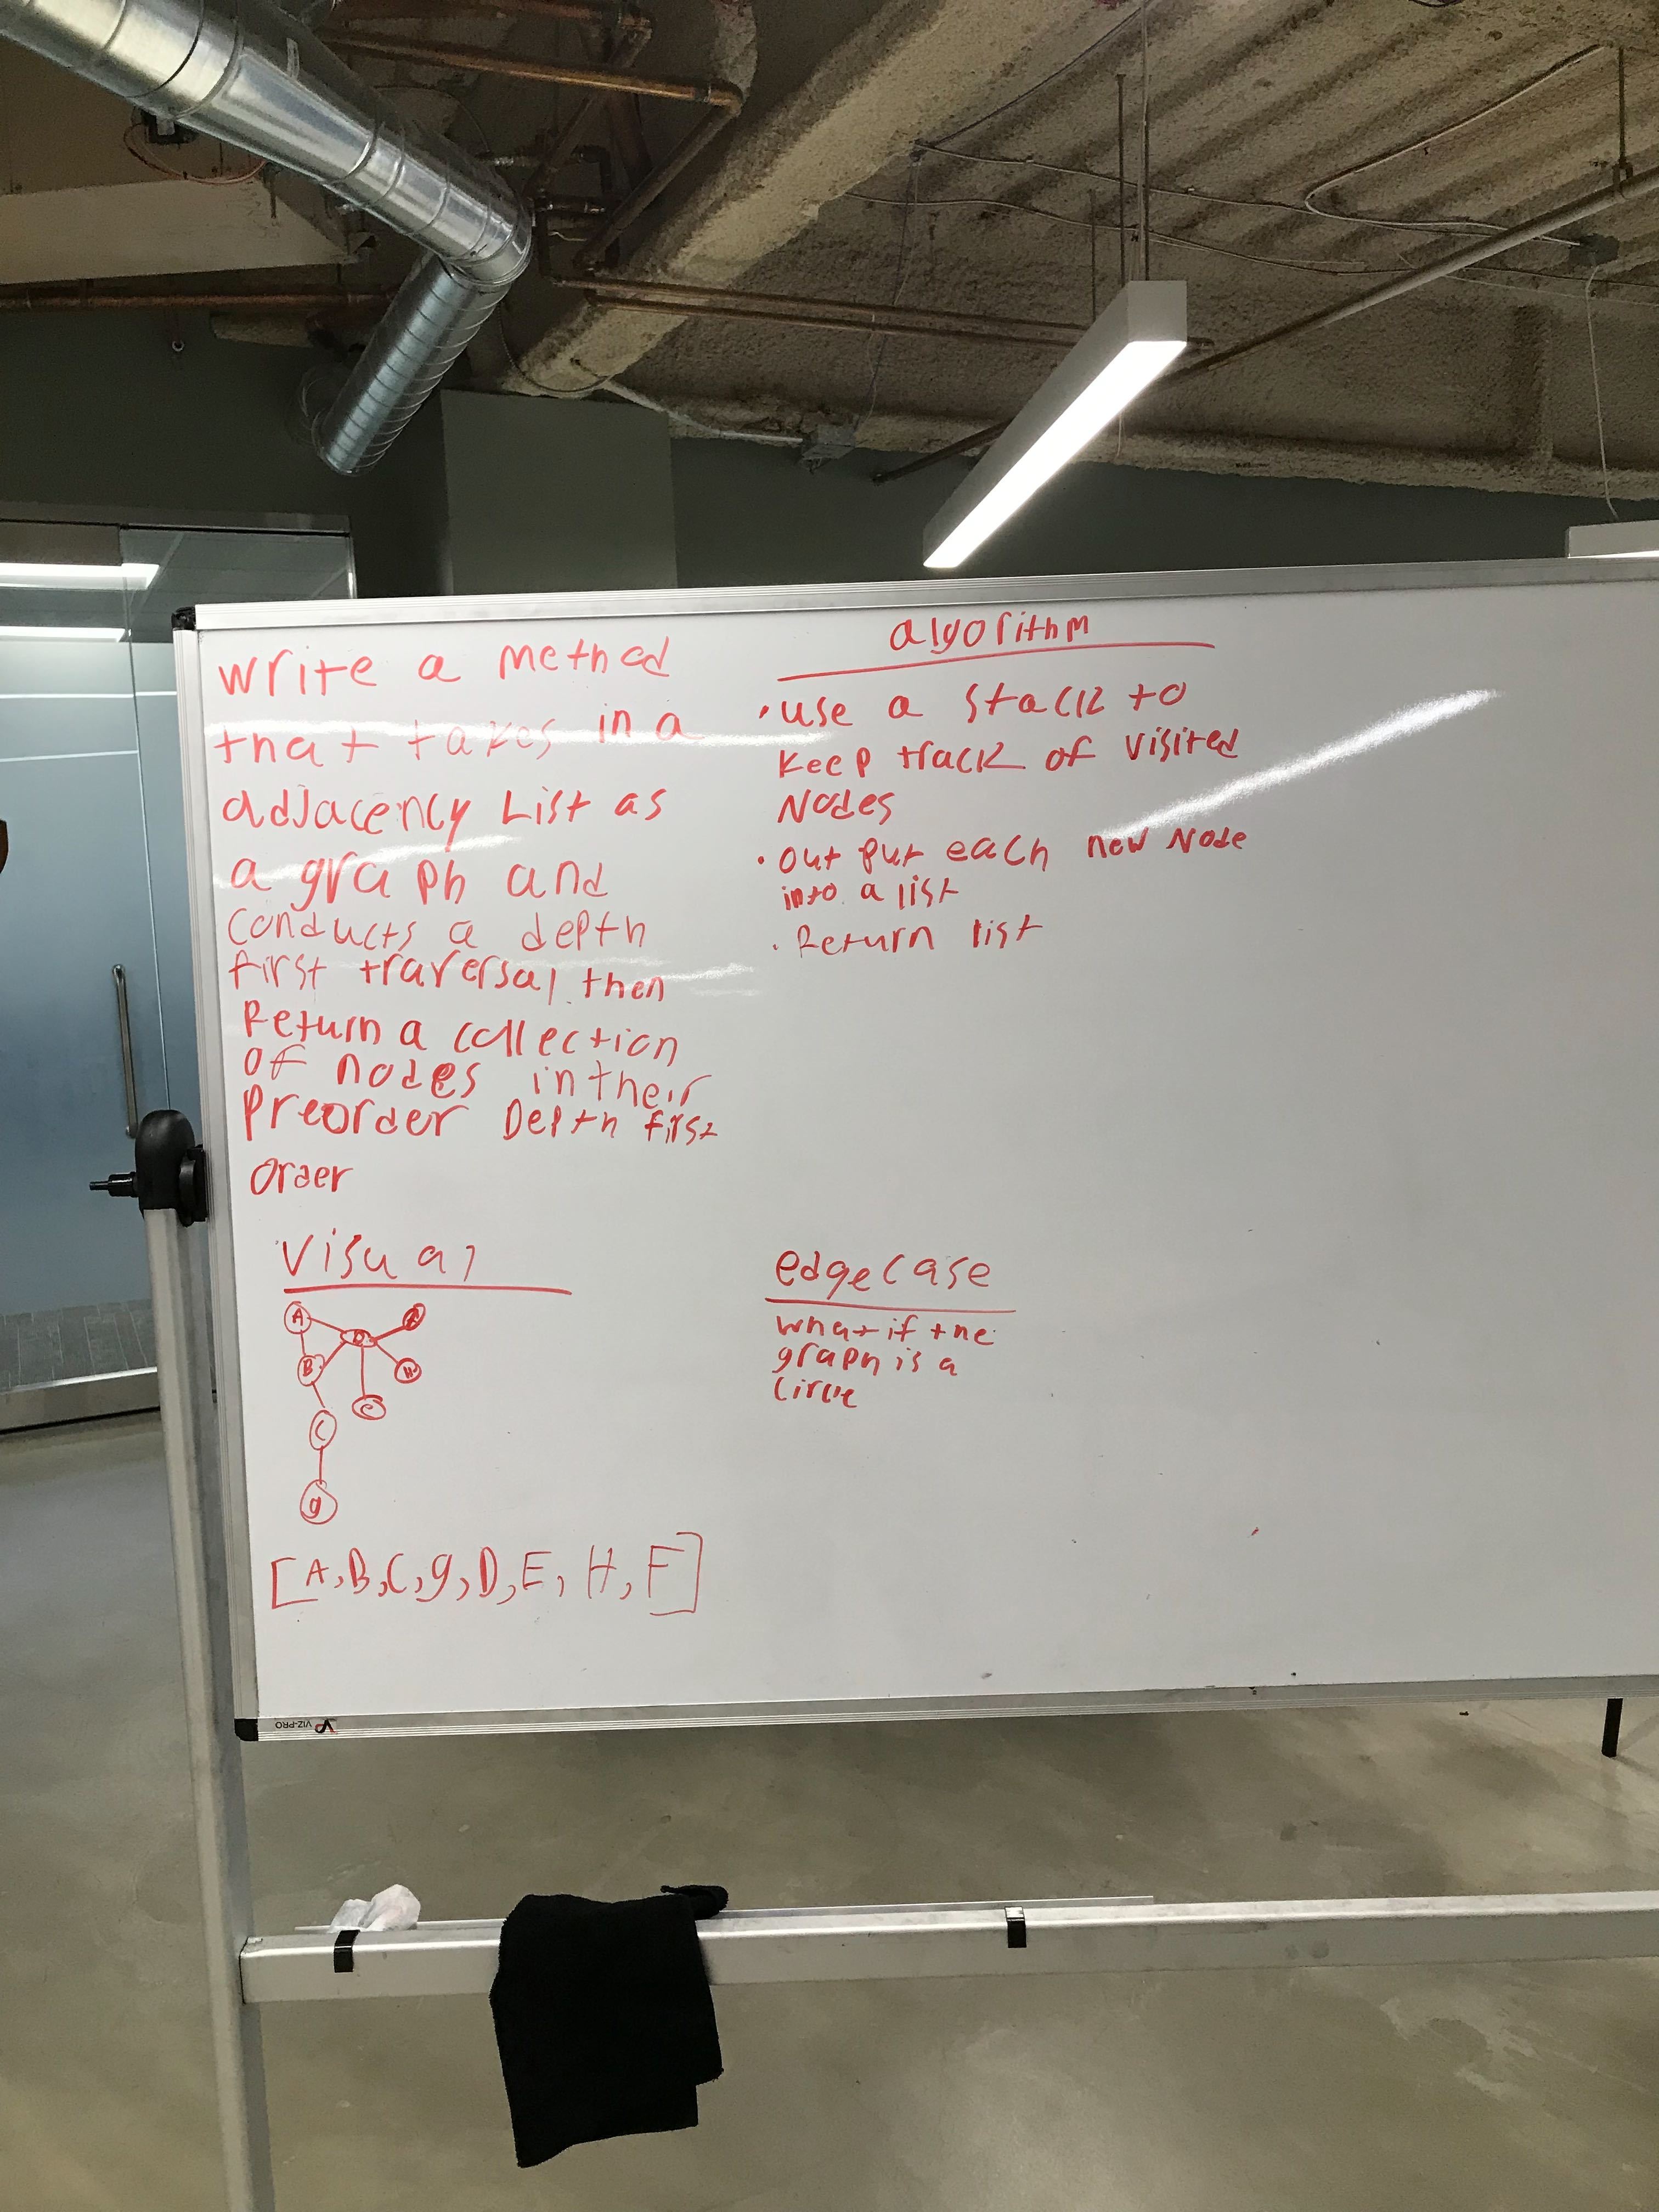 write a method
that takes in a
adjacency List as
a graph and
conducts a depth
first traversal then
Return a collection
of nodes in their
Preorder Depth first
order
algorithm
• use a stack to
keep track of visited
Nodes
• out put each new Node
into a list
• Return list
visual
A
D
B
H
E
C
g
[A, B, C, g, D, E, H, F]
edge case
what if the
graph is a
circle
VIZ-PRO